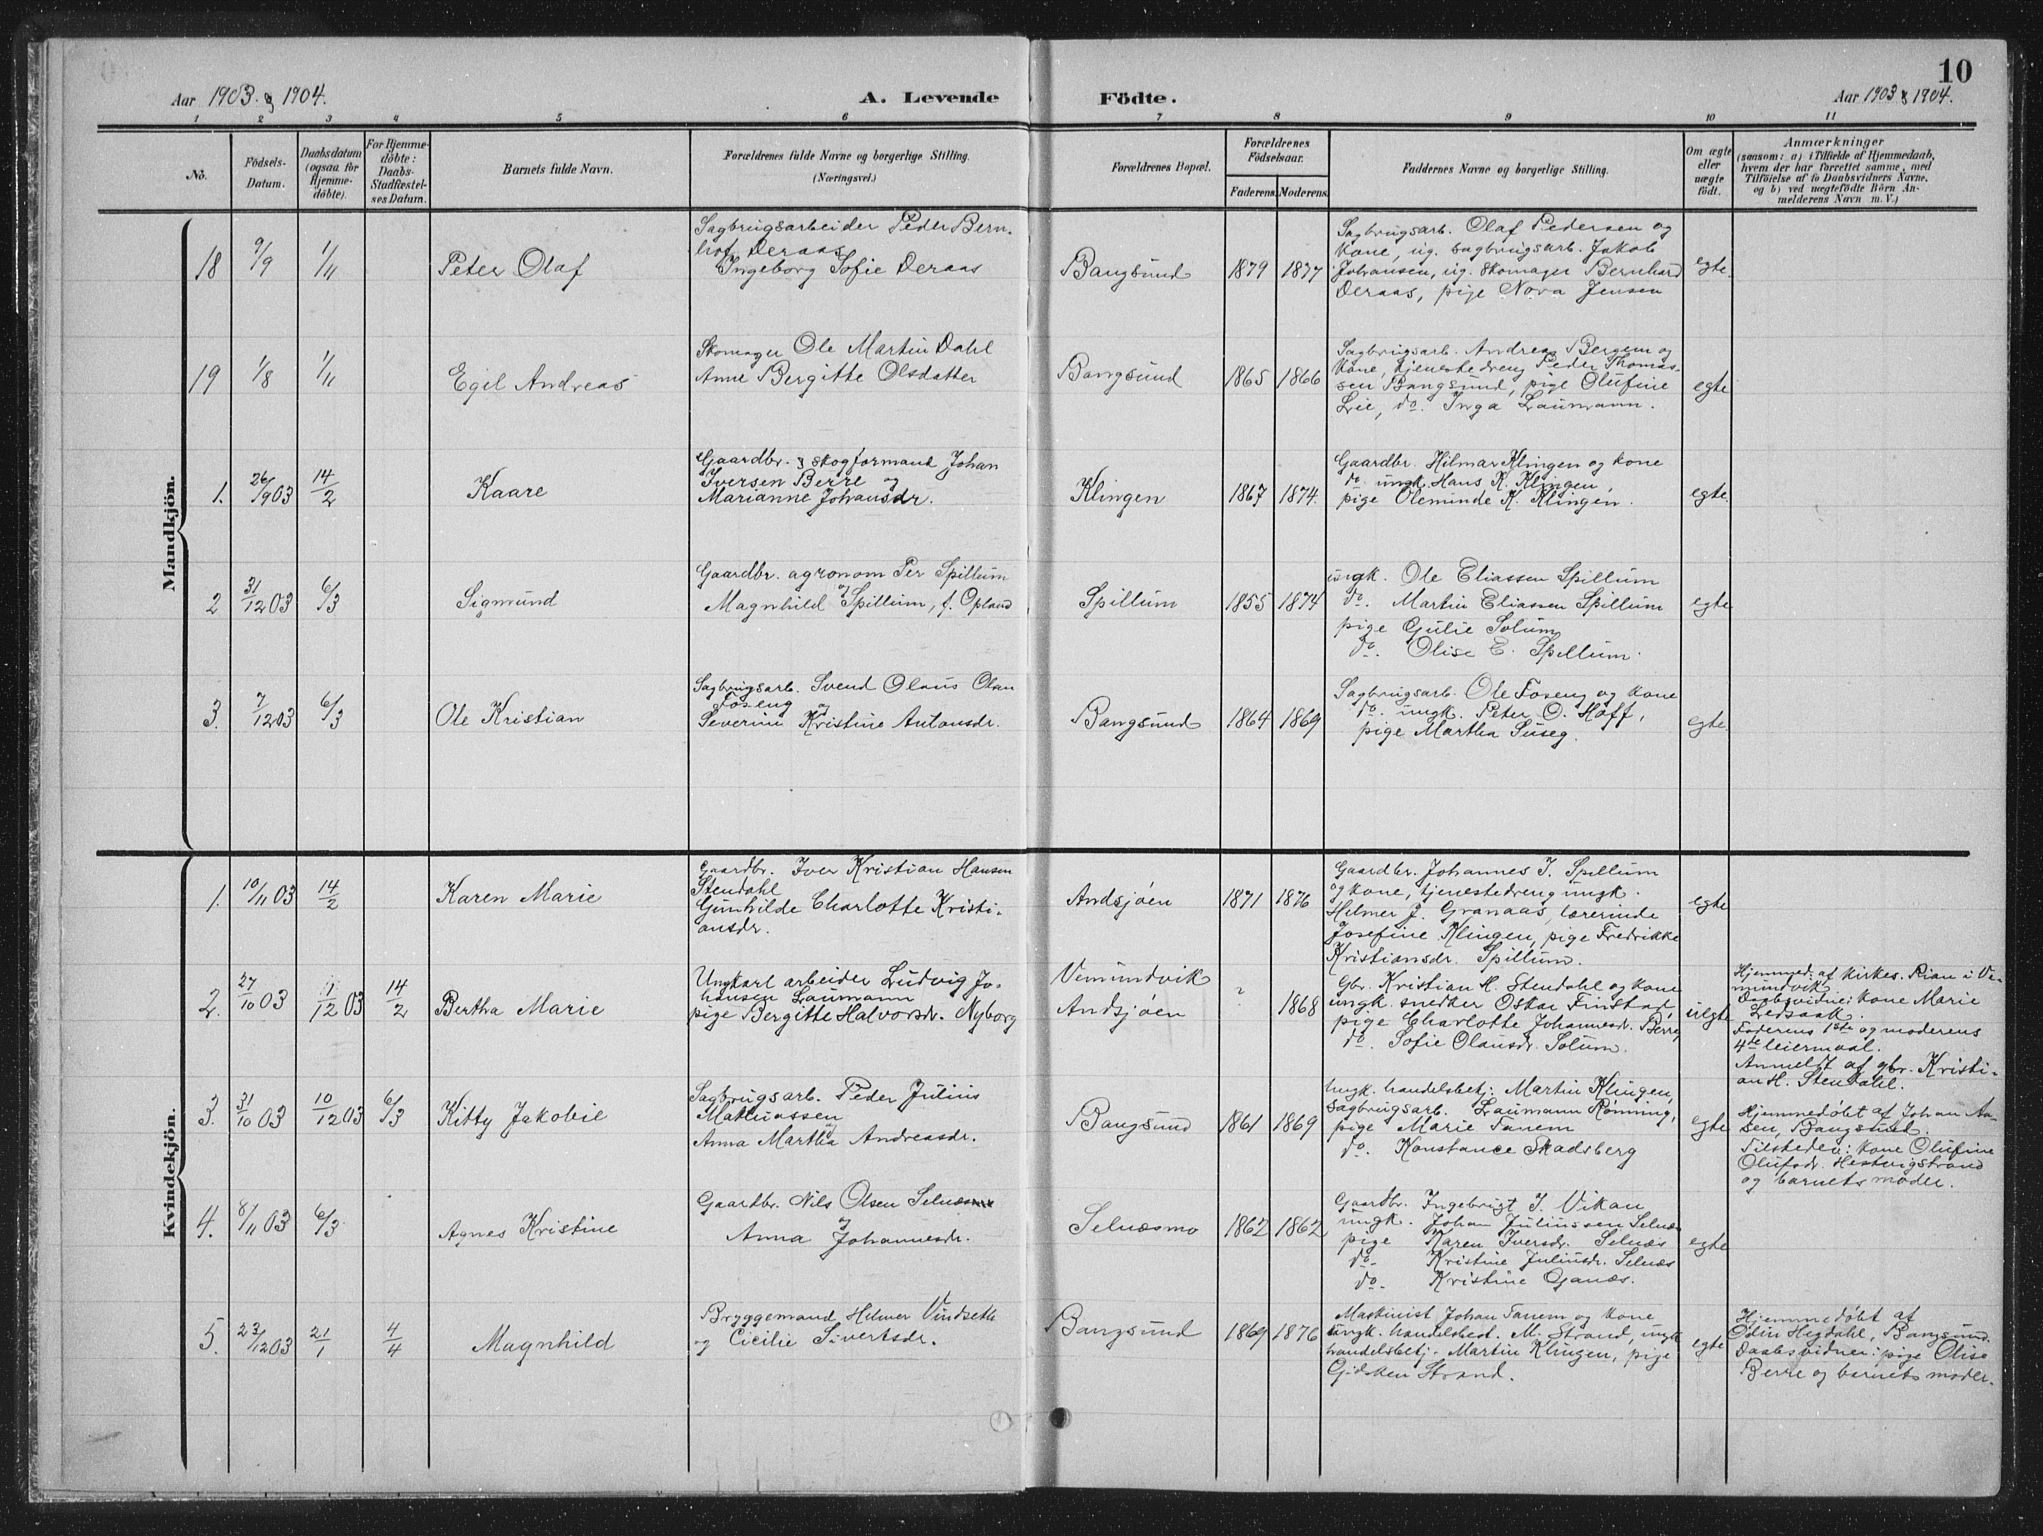 10
Aar 1903 & 1904.
A. Levende
Födte.
Aar 1903 & 1904.
1 2 3 4 5 6 7 8 9 10 11
No.
Födsels-
Datum.
Daabsdatum
(ogsaa for
Hjemme-
döbte).
For Hjemme-
döbte:
Daabs-
Stadfæstel-
ses Datum.
Barnets fulde Navn.
Forældrenes fulde Navne og borgerlige Stilling.
(Næringsvei.)
Forældrenes Bopæl.
Forældrenes
Födselsaar.
Faderens. Moderens.
Faddernes Navne og borgerlige Stilling.
Om ægte
eller
uægte
födt.
Anmærkninger
(saasom: a) i Tilfælde af Hjemmedaab,
hvem der har forrettet samme, med
Tilföielse af to Daabsvidners Navne,
og b) ved uægtefödte Börn An-
melderens Navn m. V.)
Mandkjön.
18
9/9
1/11
Peter Olaf
Sagbrugsarbeider Peder Bern-
hof Deraas
Ingeborg Sofie Deraas
Bangsund
1879
1877
Sagbrugsarb. Olaf Pedersen og
kone, ug. sagbrugsarb. Jakob
Johansen, ug. skomager Bernhard
Deraas, pige Nora Jensen
egte.
19
1/8
1/11
Egil Andreas
Skomager Ole Martin Dahl
Anne Bergitte Olsdatter
Bangsund
1865
1866
Sagbrugsarb. Andreas Bergem og
kone, tjenestedreng Peder Thomas-
sen Bangsund, pige Olufine
Lie, do. Inga Laumann.
egte
1.
26/9 03
14/2
Kaare
Gaardbr. & skogformand Johan
Iversen Berre og
Marianne Johansdr.
Klingen
1867
1874
Gaardbr. Hilmar Klingen og kone
do. ungk. Hans K. Klingen,
pige Oleminde K. Klingen.
egte.
2
31/12 03
6/3
Sigmund
Gaardbr. agronom Per Spillum
og
Magnhild Spillum, f. Opland
Spillum
1855
1874
ungk. Ole Eliassen Spillum
do. Martin Eliassen Spillum
pige Gulie Solum
do. Olise E. Spillum.
egte
3.
7/12 03
6/3
Ole Kristian
Sagbrugsarb. Svend Olaus Olsen
Foseng og
Severine Kristine Antonsdr.
Bangsund
1864
1869
Sagbrugsarb. Ole Foseng og kone
do. ungk. Peter O. Hoff,
pige Martha Suseg.
egte.
Kvindekjön.
1.
10/11 03
14/2
Karen Marie
Gaardbr. Iver Kristian Hansen
Stendahl
Gunhilde Charlotte Kristi-
ansdr.
Andsjøen
1871
1876
Gaardbr. Johannes I. Spillum
og kone, tjenestedreng ungk.
Helmer J. Granaas, lærerinde
Josefine Klingen, pige Fredrikke
Kristiansdr. Spillum.
egte
2.
27/10 03
1/12 03
14/2
Bertha Marie
Ungkarl arbeider Ludvig Jo-
hansen Laumann
pige Bergitte Halvorsdr. Nyborg
Vemundvik
Andsjøen
?
1868
Gbr. Kristian H. Stendahl og kone
ungk. snedker Oskar Finstad,
pige Charlotte Johannesdr. Berre
do. Sofie Olausdr. Solum.
uegte
Hjemmed. af kirkes. Rian i Ve-
mundvik
Daabsvidne: kone Marie
Ledsaak.
Faderens 1ste og moderens
4de leiermaal.
Anmeldt af gbr. Kristi-
an H. Stendahl.
3.
31/10 03
10/12 03
6/3
Kitty Jakobie
Sagbrugsarb. Peder Julius
Mathiassen
og
Anna Martha Andreasdr.
Bangsund
1861
1869
Ungk. handelsbetj. Martin Klingen,
sagbrugsarb. Laumann Rønning,
pige Marie Tanem
do. Konstance Skadsberg
egte
Hjemmedøbt af Johan Aa-
sen, Bangsund.
Tilstede: kone Olufine
Olufsdr. Hestvigstrand
og barnets moder.
4.
8/11 03
6/3
Agnes Kristine
Gaardbr. Nils Olsen Selnæs
og
Anna Johannesdr.
Selnæsmo
1862
1862
Gaardbr. Ingebrigt I. Vikan
ungk. Johan Juliussen Selnæs
pige Karen Iversdr. Selnæs
do. Kristine Juliusdr. Selnæs
do. Kristine Ganæs.
egte
5.
23/12 03
21/1
4/4
Magnhild
Bryggemand Helmer Vindseth
og Cicilie Sivertsdr.
Bangsund
1869
1876
Maskinist Johan Tanem og kone
ungk. handelsbest. M. Strand, ungk.
handelsbetj. Martin Klingen, pige
Gidsken Strand.
egte
Hjemmedøbt af
Odin Hegdahl, Bangsund.
Daabsvidner: pige Olise
Berre og barnets moder.